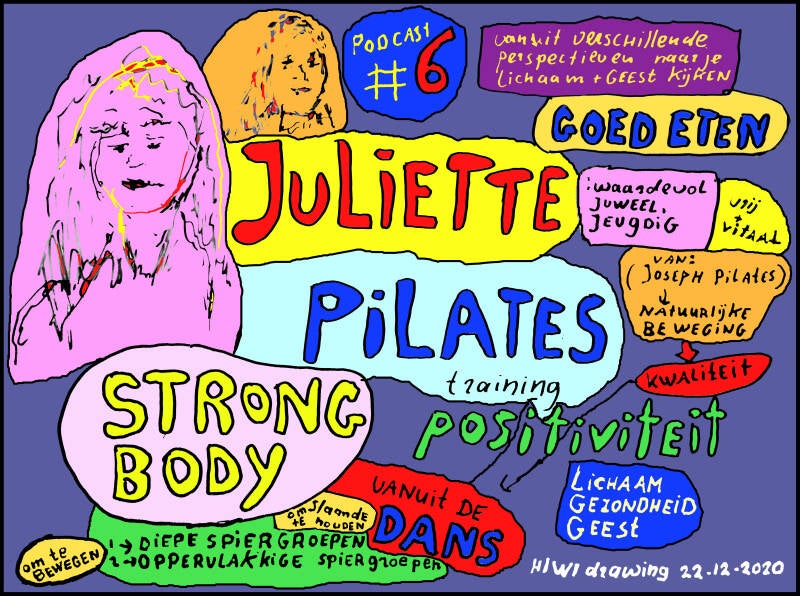 PODCAST
#6
vanuit verschillende
perspectieven naar je
lichaam + GEEST KIJKEN
GOED ETEN
JULIETTE
:waardevol
JUWEEL,
JEUGDIG
vrij
+
VITAAL
VAN:
(JOSEPH PILATES)
NATUURLIJKE
BEWEGING
PILATES
training
KWALITEIT
STRONG
BODY
positiviteit
VANUIT DE
DANS
LICHAAM
GEZONDHEID
GEEST
om staande
te houden
1 → DIEPE SPIERGROEPEN
2 → OPPERVLAKKIGE SPIERGROEPEN
om te
BEWEGEN
HIWI drawing 22-12-2020